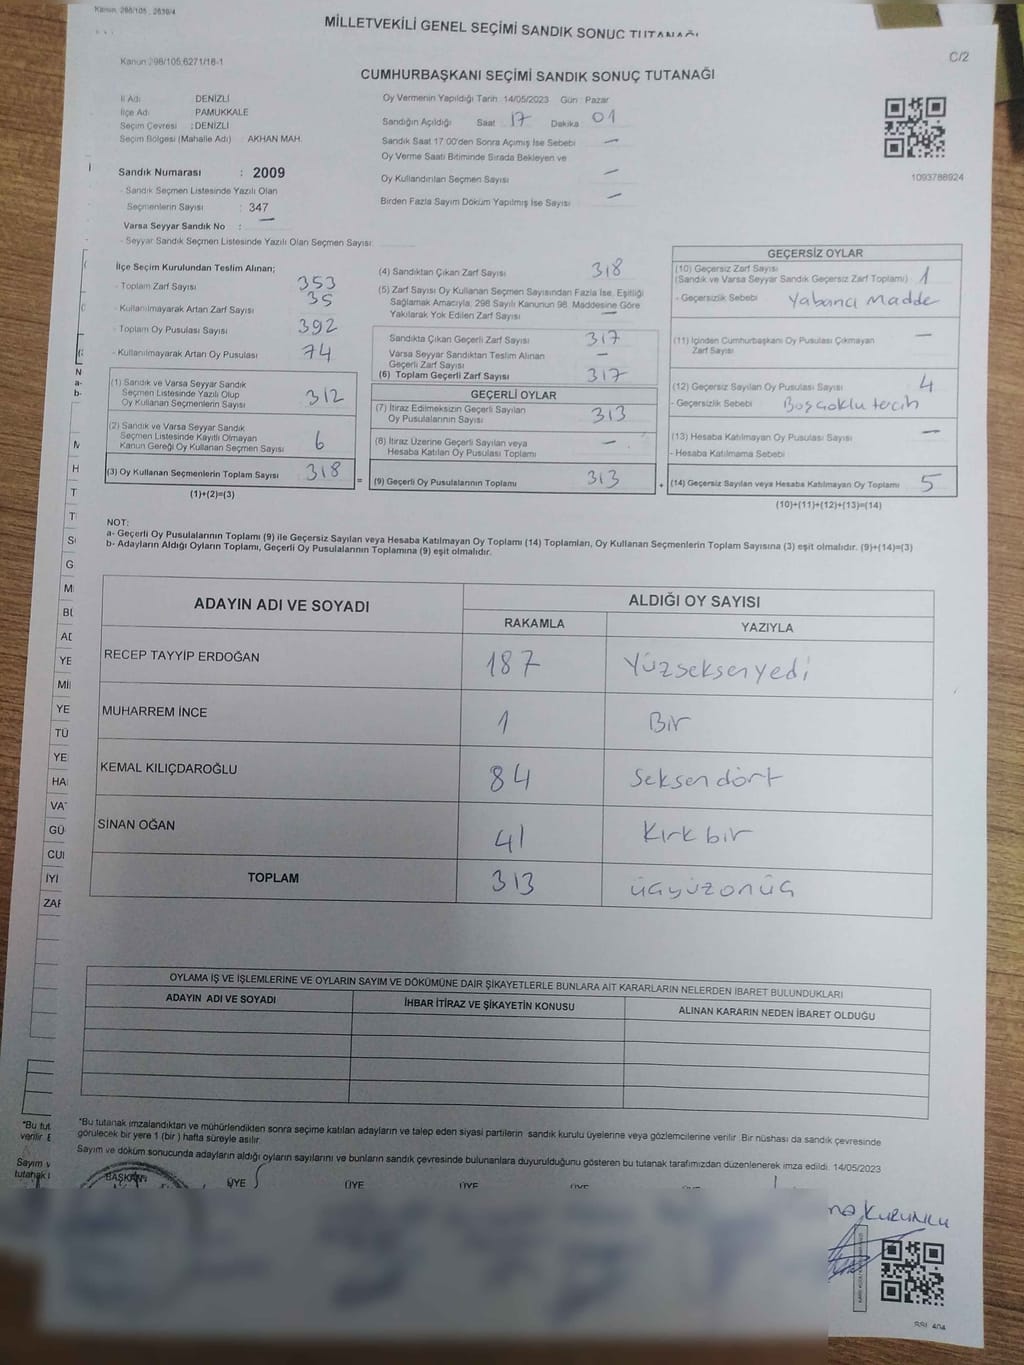 Kanun 298/105, 2839/4
MİLLETVEKİLİ GENEL SEÇİMİ SANDIK SONUÇ TUTANAĞI
C/2
Kanun 298/105,6271/18-1
CUMHURBAŞKANI SEÇİMİ SANDIK SONUÇ TUTANAĞI
İl Adı DENİZLİ
İlçe Adı PAMUKKALE
Seçim Çevresi : DENİZLİ
Seçim Bölgesi (Mahalle Adı) AKHAN MAH.
Sandık Numarası : 2009
- Sandık Seçmen Listesinde Yazılı Olan
Seçmenlerin Sayısı : 347
Varsa Seyyar Sandık No : —
- Seyyar Sandık Seçmen Listesinde Yazılı Olan Seçmen Sayısı:
Oy Vermenin Yapıldığı Tarih 14/05/2023 Gün : Pazar
Sandığın Açıldığı Saat 17 Dakika 01
Sandık Saat 17:00'den Sonra Açımış İse Sebebi —
Oy Verme Saati Bitiminde Sırada Bekleyen ve
Oy Kullandırılan Seçmen Sayısı —
Birden Fazla Sayım Döküm Yapılmış İse Sayısı —
1093788924
İlçe Seçim Kurulundan Teslim Alınan;
- Toplam Zarf Sayısı 353
- Kullanılmayarak Artan Zarf Sayısı 35
- Toplam Oy Pusulası Sayısı 392
- Kullanılmayarak Artan Oy Pusulası 74
(1) Sandık ve Varsa Seyyar Sandık
Seçmen Listesinde Yazılı Olup
Oy Kullanan Seçmenlerin Sayısı 312
(2) Sandık ve Varsa Seyyar Sandık
Seçmen Listesinde Kayıtlı Olmayan
Kanun Gereği Oy Kullanan Seçmen Sayısı 6
(3) Oy Kullanan Seçmenlerin Toplam Sayısı 318
(1)+(2)=(3)
(4) Sandıktan Çıkan Zarf Sayısı 318
(5) Zarf Sayısı Oy Kullanan Seçmen Sayısından Fazla İse, Eşitliği
Sağlamak Amacıyla; 298 Sayılı Kanunun 98. Maddesine Göre
Yakılarak Yok Edilen Zarf Sayısı —
Sandıkta Çıkan Geçerli Zarf Sayısı 317
Varsa Seyyar Sandıktan Teslim Alınan
Geçerli Zarf Sayısı —
(6) Toplam Geçerli Zarf Sayısı 317
GEÇERLİ OYLAR
(7) İtiraz Edilmeksizin Geçerli Sayılan
Oy Pusulalarının Sayısı 313
(8) İtiraz Üzerine Geçerli Sayılan veya
Hesaba Katılan Oy Pusulası Toplamı —
= (9) Geçerli Oy Pusulalarının Toplamı 313
GEÇERSİZ OYLAR
(10) Geçersiz Zarf Sayısı
(Sandık ve Varsa Seyyar Sandık Geçersiz Zarf Toplamı) 1
- Geçersizlik Sebebi Yabancı Madde
(11) İçinden Cumhurbaşkanı Oy Pusulası Çıkmayan
Zarf Sayısı —
(12) Geçersiz Sayılan Oy Pusulası Sayısı 4
- Geçersizlik Sebebi Boş çoklu tercih
(13) Hesaba Katılmayan Oy Pusulası Sayısı —
- Hesaba Katılmama Sebebi
+ (14) Geçersiz Sayılan veya Hesaba Katılmayan Oy Toplamı 5
(10)+(11)+(12)+(13)=(14)
NOT:
a- Geçerli Oy Pusulalarının Toplamı (9) ile Geçersiz Sayılan veya Hesaba Katılmayan Oy Toplamı (14) Toplamları, Oy Kullanan Seçmenlerin Toplam Sayısına (3) eşit olmalıdır. (9)+(14)=(3)
b- Adayların Aldığı Oyların Toplamı, Geçerli Oy Pusulalarının Toplamına (9) eşit olmalıdır.
ADAYIN ADI VE SOYADI
ALDIĞI OY SAYISI
RAKAMLA YAZIYLA
RECEP TAYYİP ERDOĞAN 187 Yüzseksenyedi
MUHARREM İNCE 1 Bir
KEMAL KILIÇDAROĞLU 84 Seksendört
SİNAN OĞAN 41 Kırkbir
TOPLAM 313 üçyüzonüç
OYLAMA İŞ VE İŞLEMLERİNE VE OYLARIN SAYIM VE DÖKÜMÜNE DAİR ŞİKAYETLERLE BUNLARA AİT KARARLARIN NELERDEN İBARET BULUNDUKLARI
ADAYIN ADI VE SOYADI İHBAR İTİRAZ VE ŞİKAYETİN KONUSU ALINAN KARARIN NEDEN İBARET OLDUĞU
*Bu tutanak imzalandıktan ve mühürlendikten sonra seçime katılan adayların ve talep eden siyasi partilerin sandık kurulu üyelerine veya gözlemcilerine verilir. Bir nüshası da sandık çevresinde
görülecek bir yere 1 (bir ) hafta süreyle asılır.
Sayım ve döküm sonucunda adayların aldığı oyların sayılarını ve bunların sandık çevresinde bulunanlara duyurulduğunu gösteren bu tutanak tarafımızdan düzenlenerek imza edildi. 14/05/2023
BAŞKAN ÜYE ÜYE ÜYE